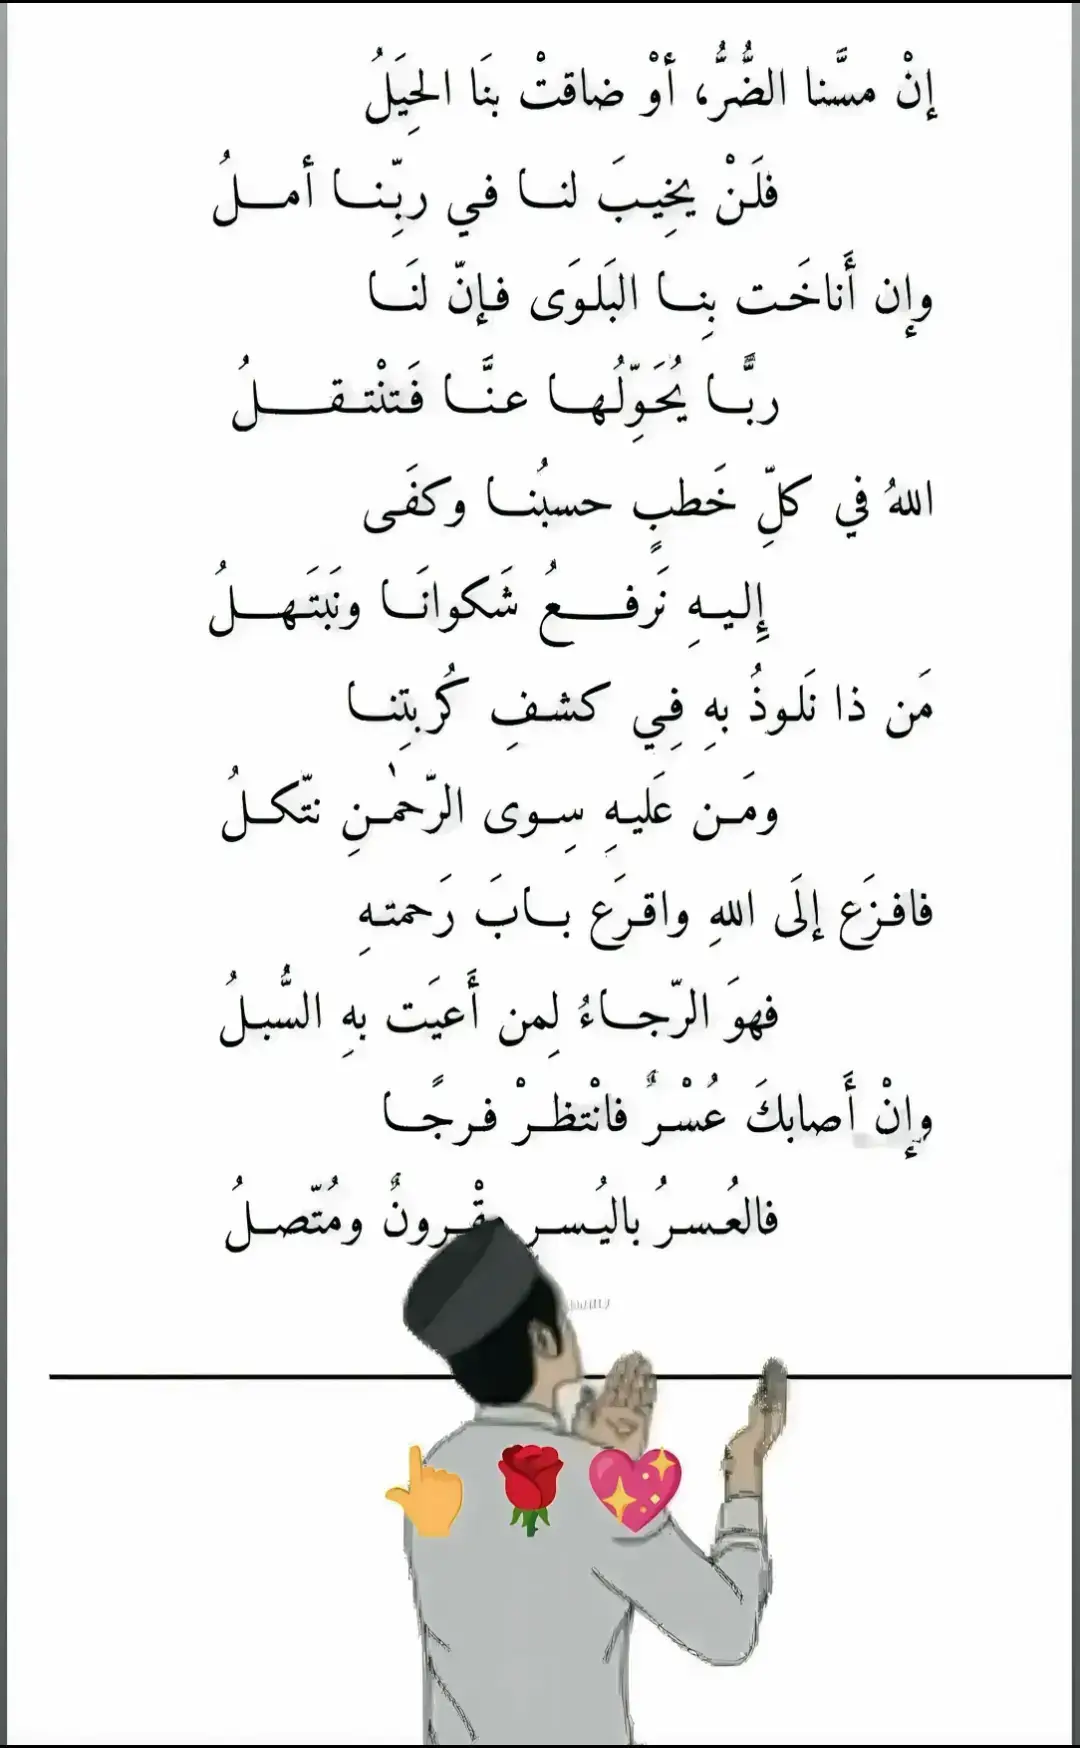 إنْ مسَّنا الضُّرُّ، أوْ ضاقتْ بنَا الحِيَلُ
فلَنْ يخِيبَ لنـا في ربِّنـا أمـلُ
وإِن أَناخَـت بِنـا البَلوَى فإنّ لنَـا
ربًّـا يُحَوِّلُهـا عنَّـا فَتنْتـقـلُ
اللهُ في كلِّ خَطبٍ حسبُنـا وكفَى
إِليـهِ نَرفـعُ شَكوانَـا ونَبتَـهـلُ
مَن ذا نَلوذُ بهِ فِي كشفِ كُربتِنـا
ومَـن عَليـهِ سِـوى الرّحمٰـنِ نتّكـلُ
فافـزَع إلَى اللهِ واقـرَع بـابَ رَحمتهِ
فهوَ الرّجـاءُ لِمن أَعيَت بهِ السُّبـلُ
وإِنْ أَصابكَ عُسْـرٌ فانْتظـرْ فـرجًـا
فالعُـسـرُ باليُـسـرِ مقْـرونٌ ومُتّصـلُ